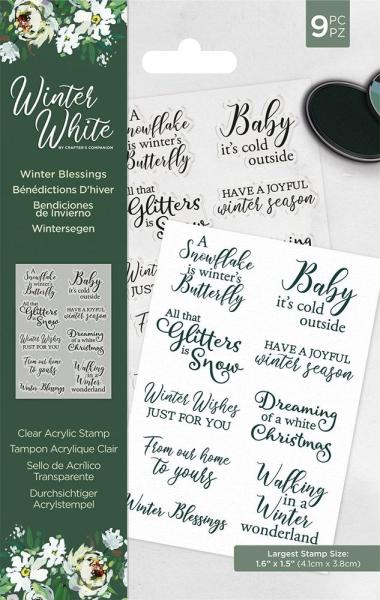 Winter
White
BY CRAFTER'S COMPANION
Winter Blessings
Bénédictions D'hiver
Bendiciones
de Invierno
Wintersegen
A
Snowflake
is winter's
Butterfly
Baby
it's cold
outside
All that
Glitters
is
Snow
HAVE A JOYFUL
winter season
Winter Wishes
JUST FOR YOU
Dreaming
of a white
Christmas
From our home
to yours
Walking
in a
Winter
wonderland
Winter Blessings
Clear Acrylic Stamp
Tampon Acrylique Clair
Sello de Acrílico
Transparente
Durchsichtiger
Acrylstempel
9 PC
PZ
A
Snowflake
is winter's
Butterfly
Baby
it's cold
outside
All that
Glitters
is
Snow
HAVE A JOYFUL
winter season
A
Snowflake
is winter's
Butterfly
Baby
it's cold
outside
All that
Glitters
is Snow
HAVE A JOYFUL
winter season
Winter Wishes
JUST FOR YOU
Dreaming
of a white
Christmas
From our home
to yours
Walking
in a
Winter
wonderland
Winter Blessings
Largest Stamp Size:
1.6" x 1.5" (4.1cm x 3.8cm)